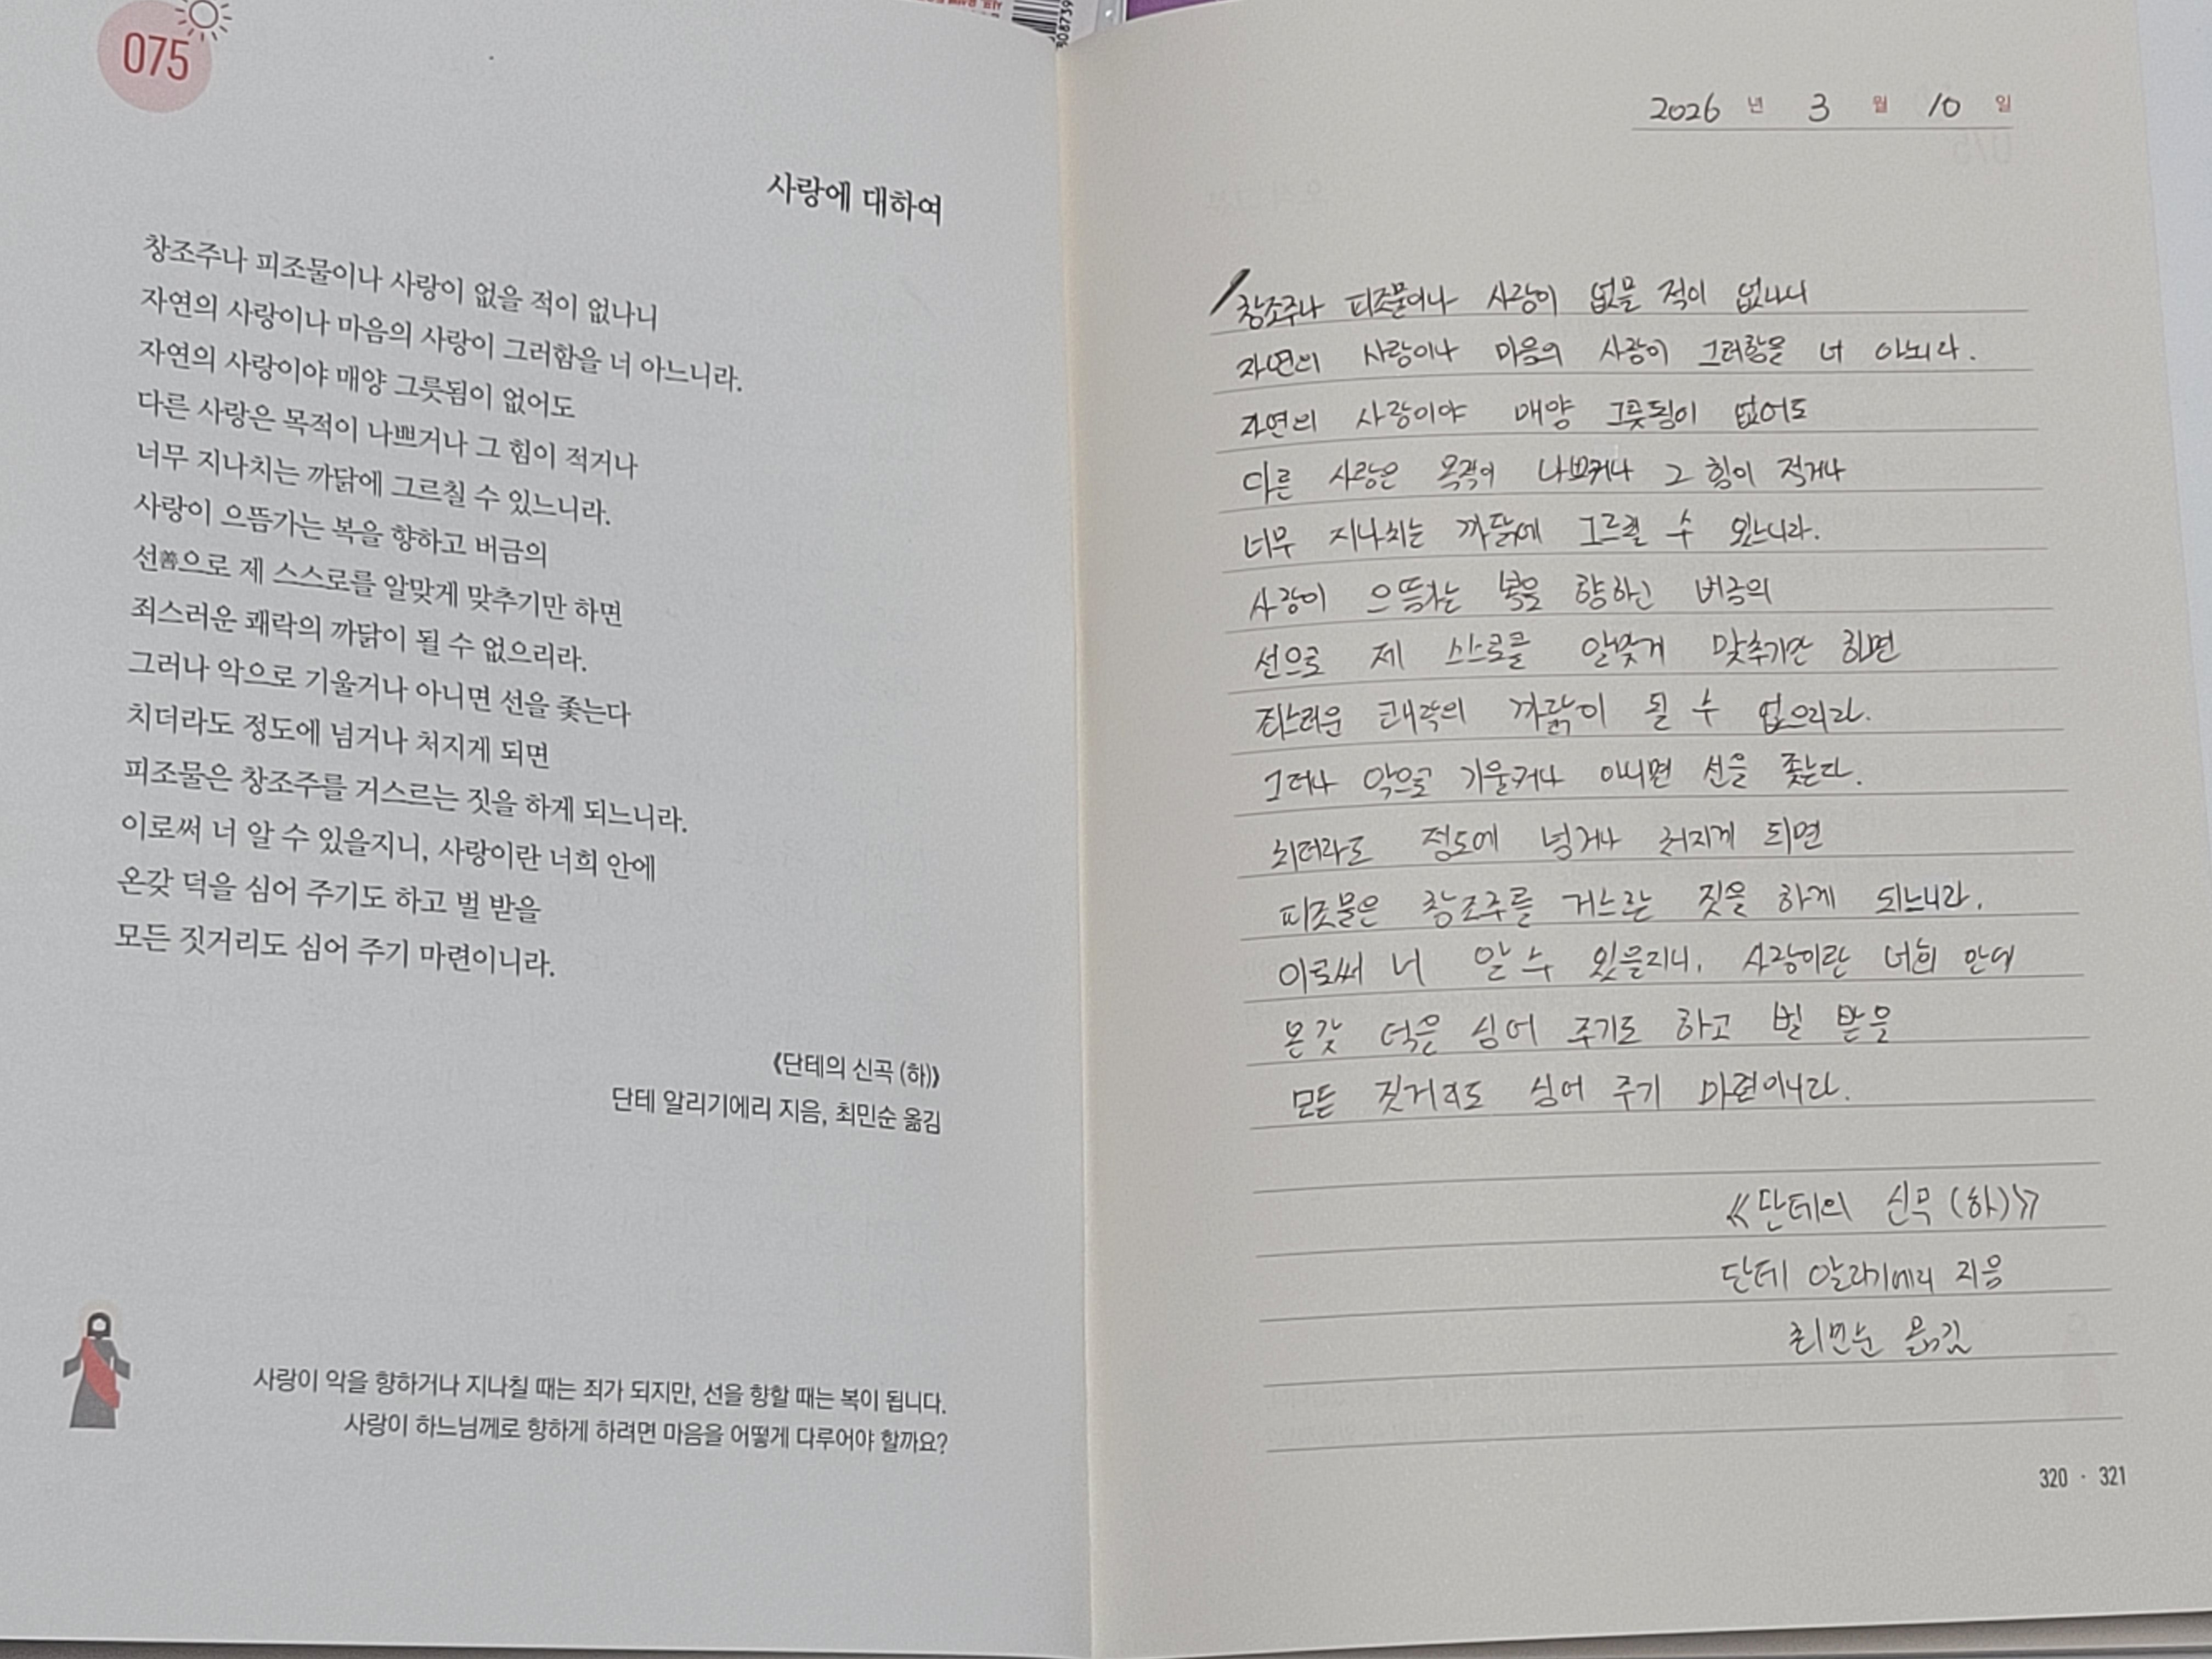 075
사랑에 대하여
창조주나 피조물이나 사랑이 없을 적이 없나니
자연의 사랑이나 마음의 사랑이 그러함을 너 아느니라.
자연의 사랑이야 매양 그릇됨이 없어도
다른 사랑은 목적이 나쁘거나 그 힘이 적거나
너무 지나치는 까닭에 그르칠 수 있느니라.
사랑이 으뜸가는 복을 향하고 버금의
선善으로 제 스스로를 알맞게 맞추기만 하면
죄스러운 쾌락의 까닭이 될 수 없으리라.
그러나 악으로 기울거나 아니면 선을 좇는다
치더라도 정도에 넘거나 처지게 되면
피조물은 창조주를 거스르는 짓을 하게 되느니라.
이로써 너 알 수 있을지니, 사랑이란 너희 안에
온갖 덕을 심어 주기도 하고 벌 받을
모든 짓거리도 심어 주기 마련이니라.
《단테의 신곡 (하)》
단테 알리기에리 지음, 최민순 옮김
사랑이 악을 향하거나 지나칠 때는 죄가 되지만, 선을 향할 때는 복이 됩니다.
사랑이 하느님께로 향하게 하려면 마음을 어떻게 다루어야 할까요?
2026 년 3 월 10 일
창조주나 피조물이나 사랑이 없을 적이 없나니
자연의 사랑이나 마음의 사랑이 그러함을 너 아뇌라.
자연의 사랑이야 매양 그릇됨이 없어도
다른 사랑은 목적이 나쁘거나 그 힘이 적거나
너무 지나치는 까닭에 그르칠 수 있느니라.
사랑이 으뜸가는 복을 향하고 버금의
선으로 제 스스로를 알맞게 맞추기만 하면
죄스러운 쾌락의 까닭이 될 수 없으리라.
그러나 악으로 기울거나 아니면 선을 좇는다.
치더라도 정도에 넘거나 처지게 되면
피조물은 창조주를 거스르는 짓을 하게 되느니라.
이로써 너 알 수 있을지니, 사랑이란 너희 안에
온갖 덕을 심어 주기도 하고 벌 받을
모든 짓거리도 심어 주기 마련이니라.
《단테의 신곡 (하)》
단테 알리기에리 지음
최민순 옮김
320 · 321